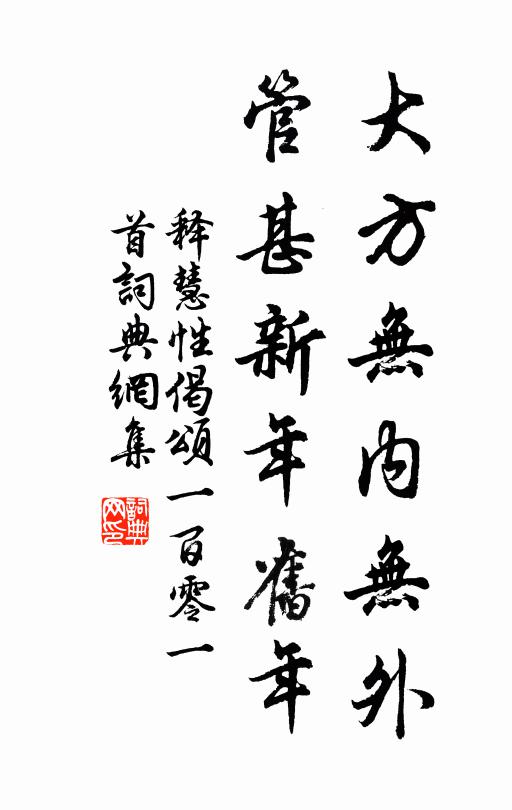 大方無内無外
管甚新年舊年
释慧性偈頌一百零一
首詞典網集
詞典
网印